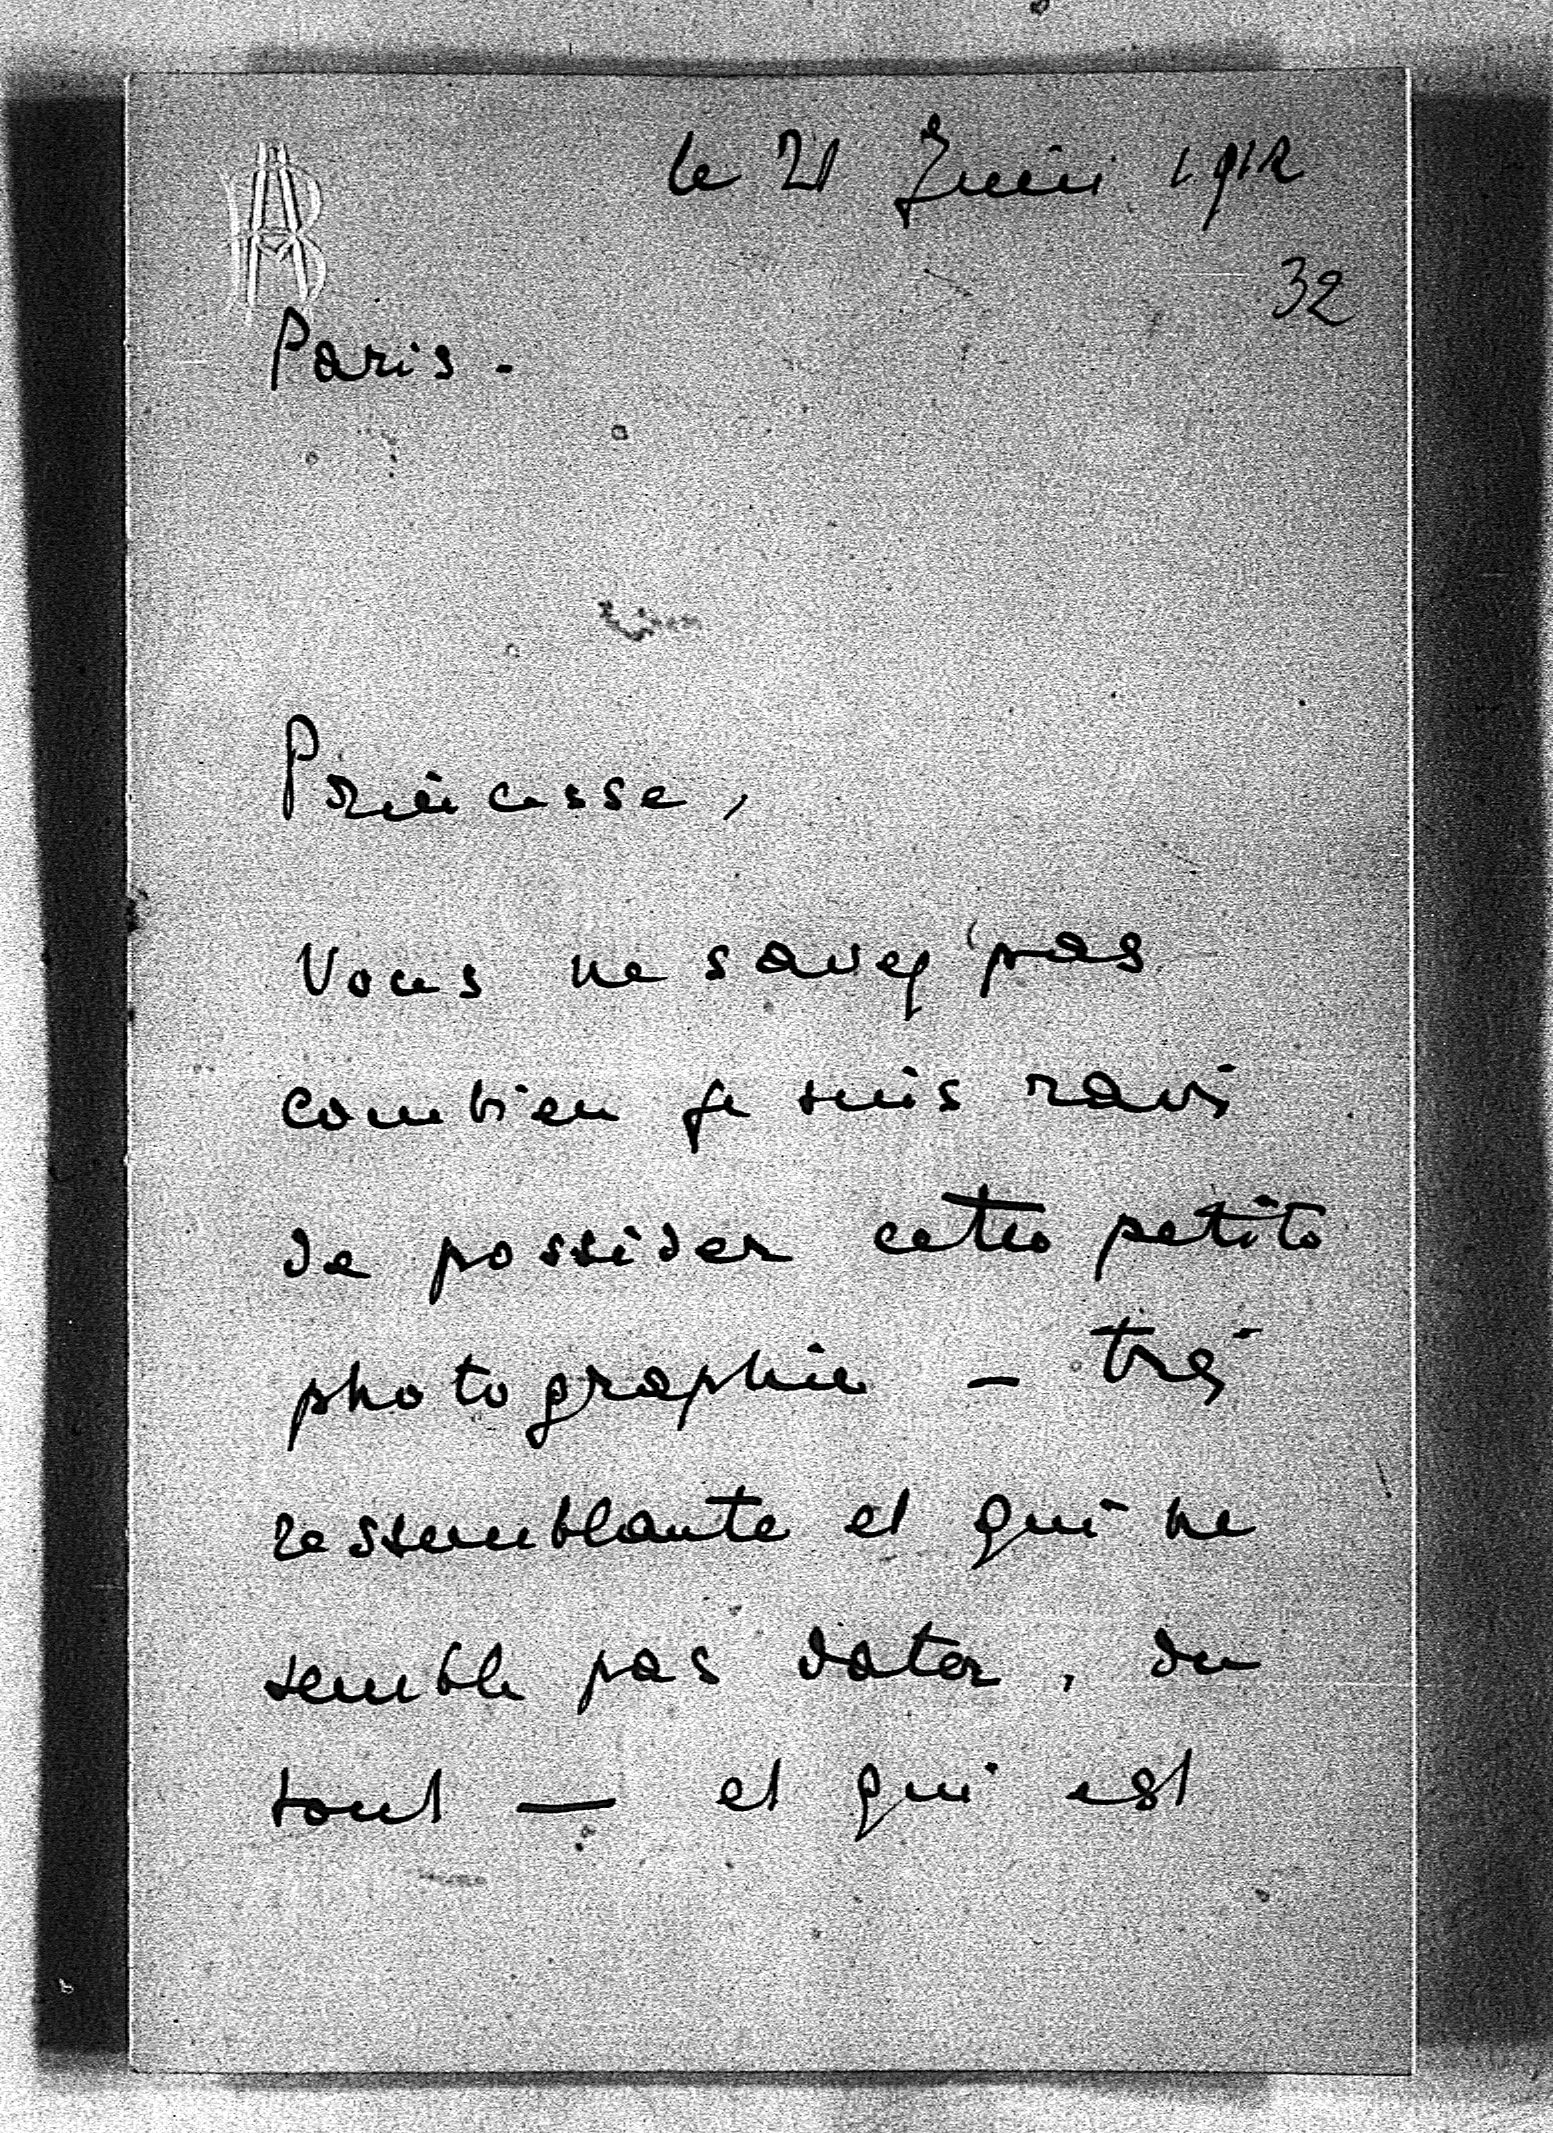 le 21 Juin 1912
32
Paris.
Princesse,
Vous ne savez pas
combien je suis ravi
de posséder cette petite
photographie — très
ressemblante et qui ne
semble pas dater, du
tout — et qui est